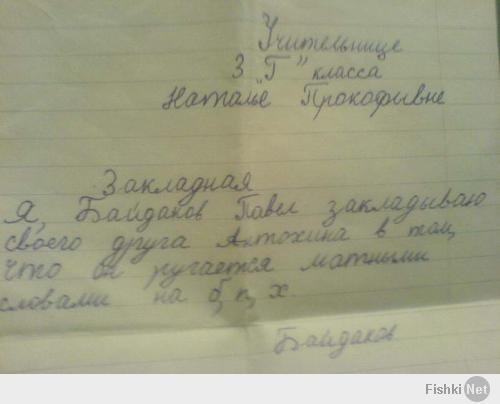 Учительнице
3 "Г" класса
Наталье Прокофивне
Закладная
Я, Байдаков Павел закладываю
своего друга Антохина в том,
что он ругается матными
словами на б, п, х.
Байдаков
Fishki Net